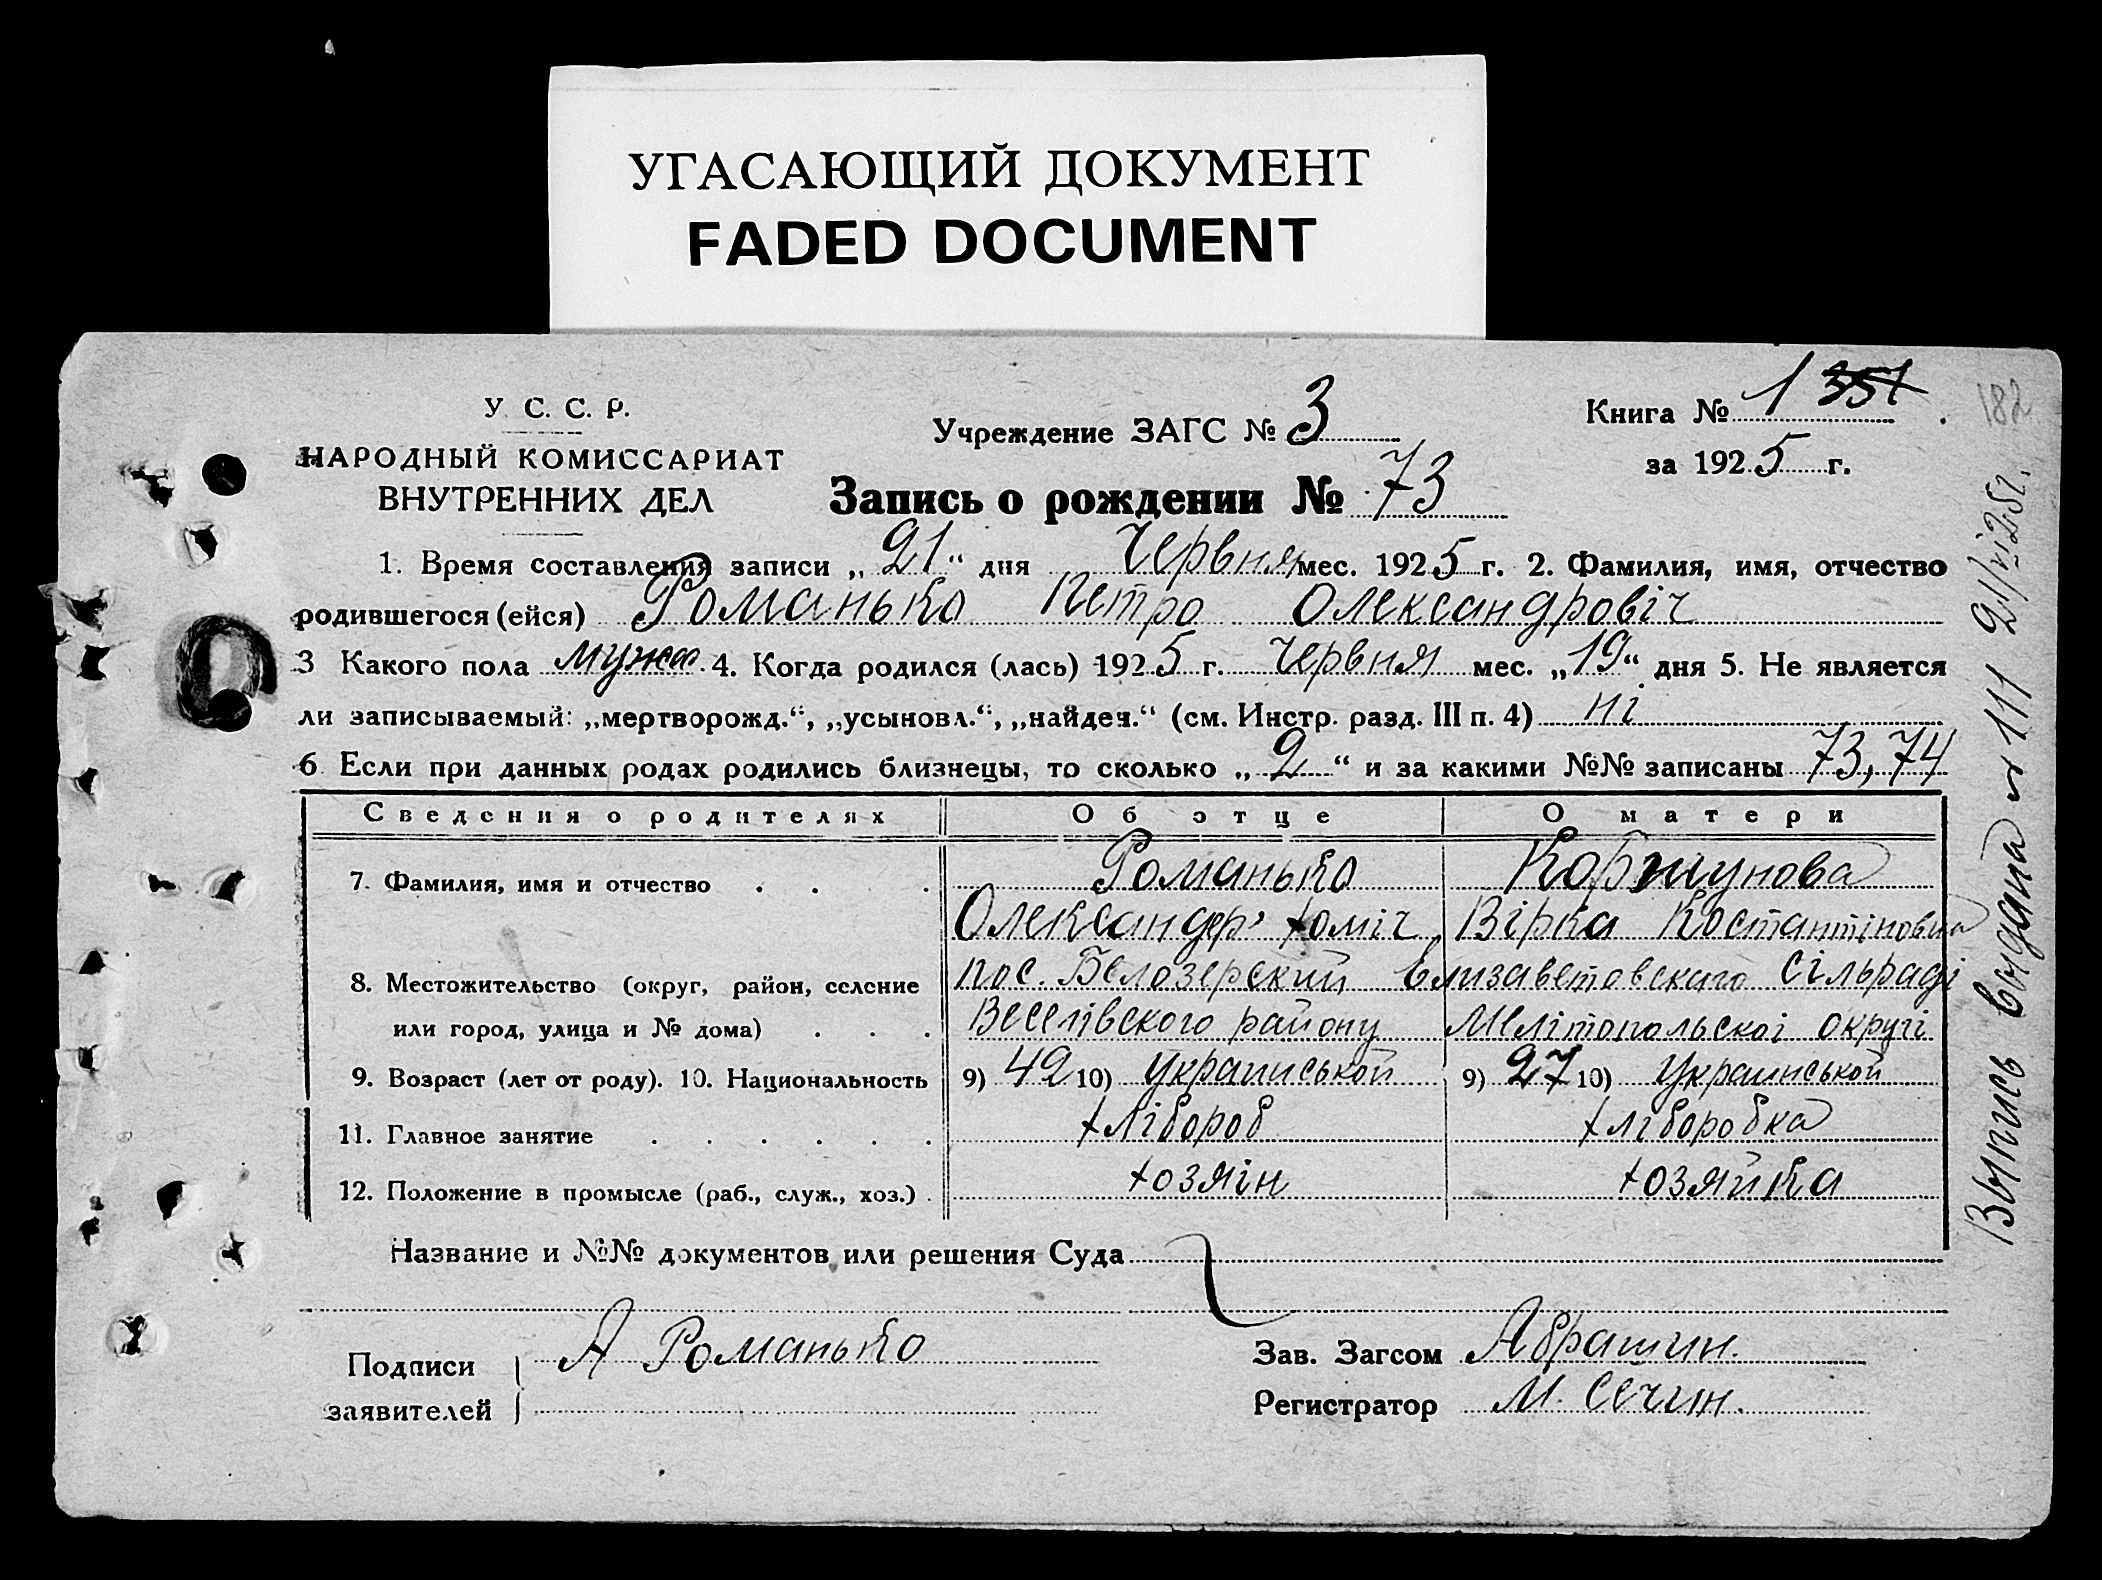 УГАСАЮЩИЙ ДОКУМЕНТ
FADED DOCUMENT
У. С. С. Р.
НАРОДНЫЙ КОМИССАРИАТ
ВНУТРЕННИХ ДЕЛ
Учреждение ЗАГС № 3
Книга № 1 351
182
за 1925 г.
Запись о рождении № 73
1. Время составления записи „21“ дня Червня мес. 1925 г. 2. Фамилия, имя, отчество
родившегося (ейся) Романько Петро Олександровіч
3 Какого пола мужс. 4. Когда родился (лась) 1925 г. Червня мес. „19“ дня 5. Не является
ли записываемый: „мертворожд.“, „усыновл.“, „найден.“ (см. Инстр. разд. III п. 4) ні
6 Если при данных родах родились близнецы, то сколько „2“ и за какими №№ записаны 73, 74
Сведения о родителях Об отце О матери
7. Фамилия, имя и отчество Романько Коршунова
Олександр Хоміч Вірка Костантіновна
8. Местожительство (округ, район, селение пос. Белозерский Елизаветовскаго сільраді
или город, улица и № дома) Веселівского району Мелітопольскоі округі
9. Возраст (лет от роду). 10. Национальность 9) 42 10) Украиськой 9) 27 10) Украинськой
11. Главное занятие хлібороб хліборобка
12. Положение в промысле (раб., служ., хоз.) хозяін хозяйка
Название и №№ документов или решения Суда
Подписи заявителей А Романько
Зав. Загсом Абрашин.
Регистратор М. Сечин.
Выпись выдана № 111 21/VI 25г.